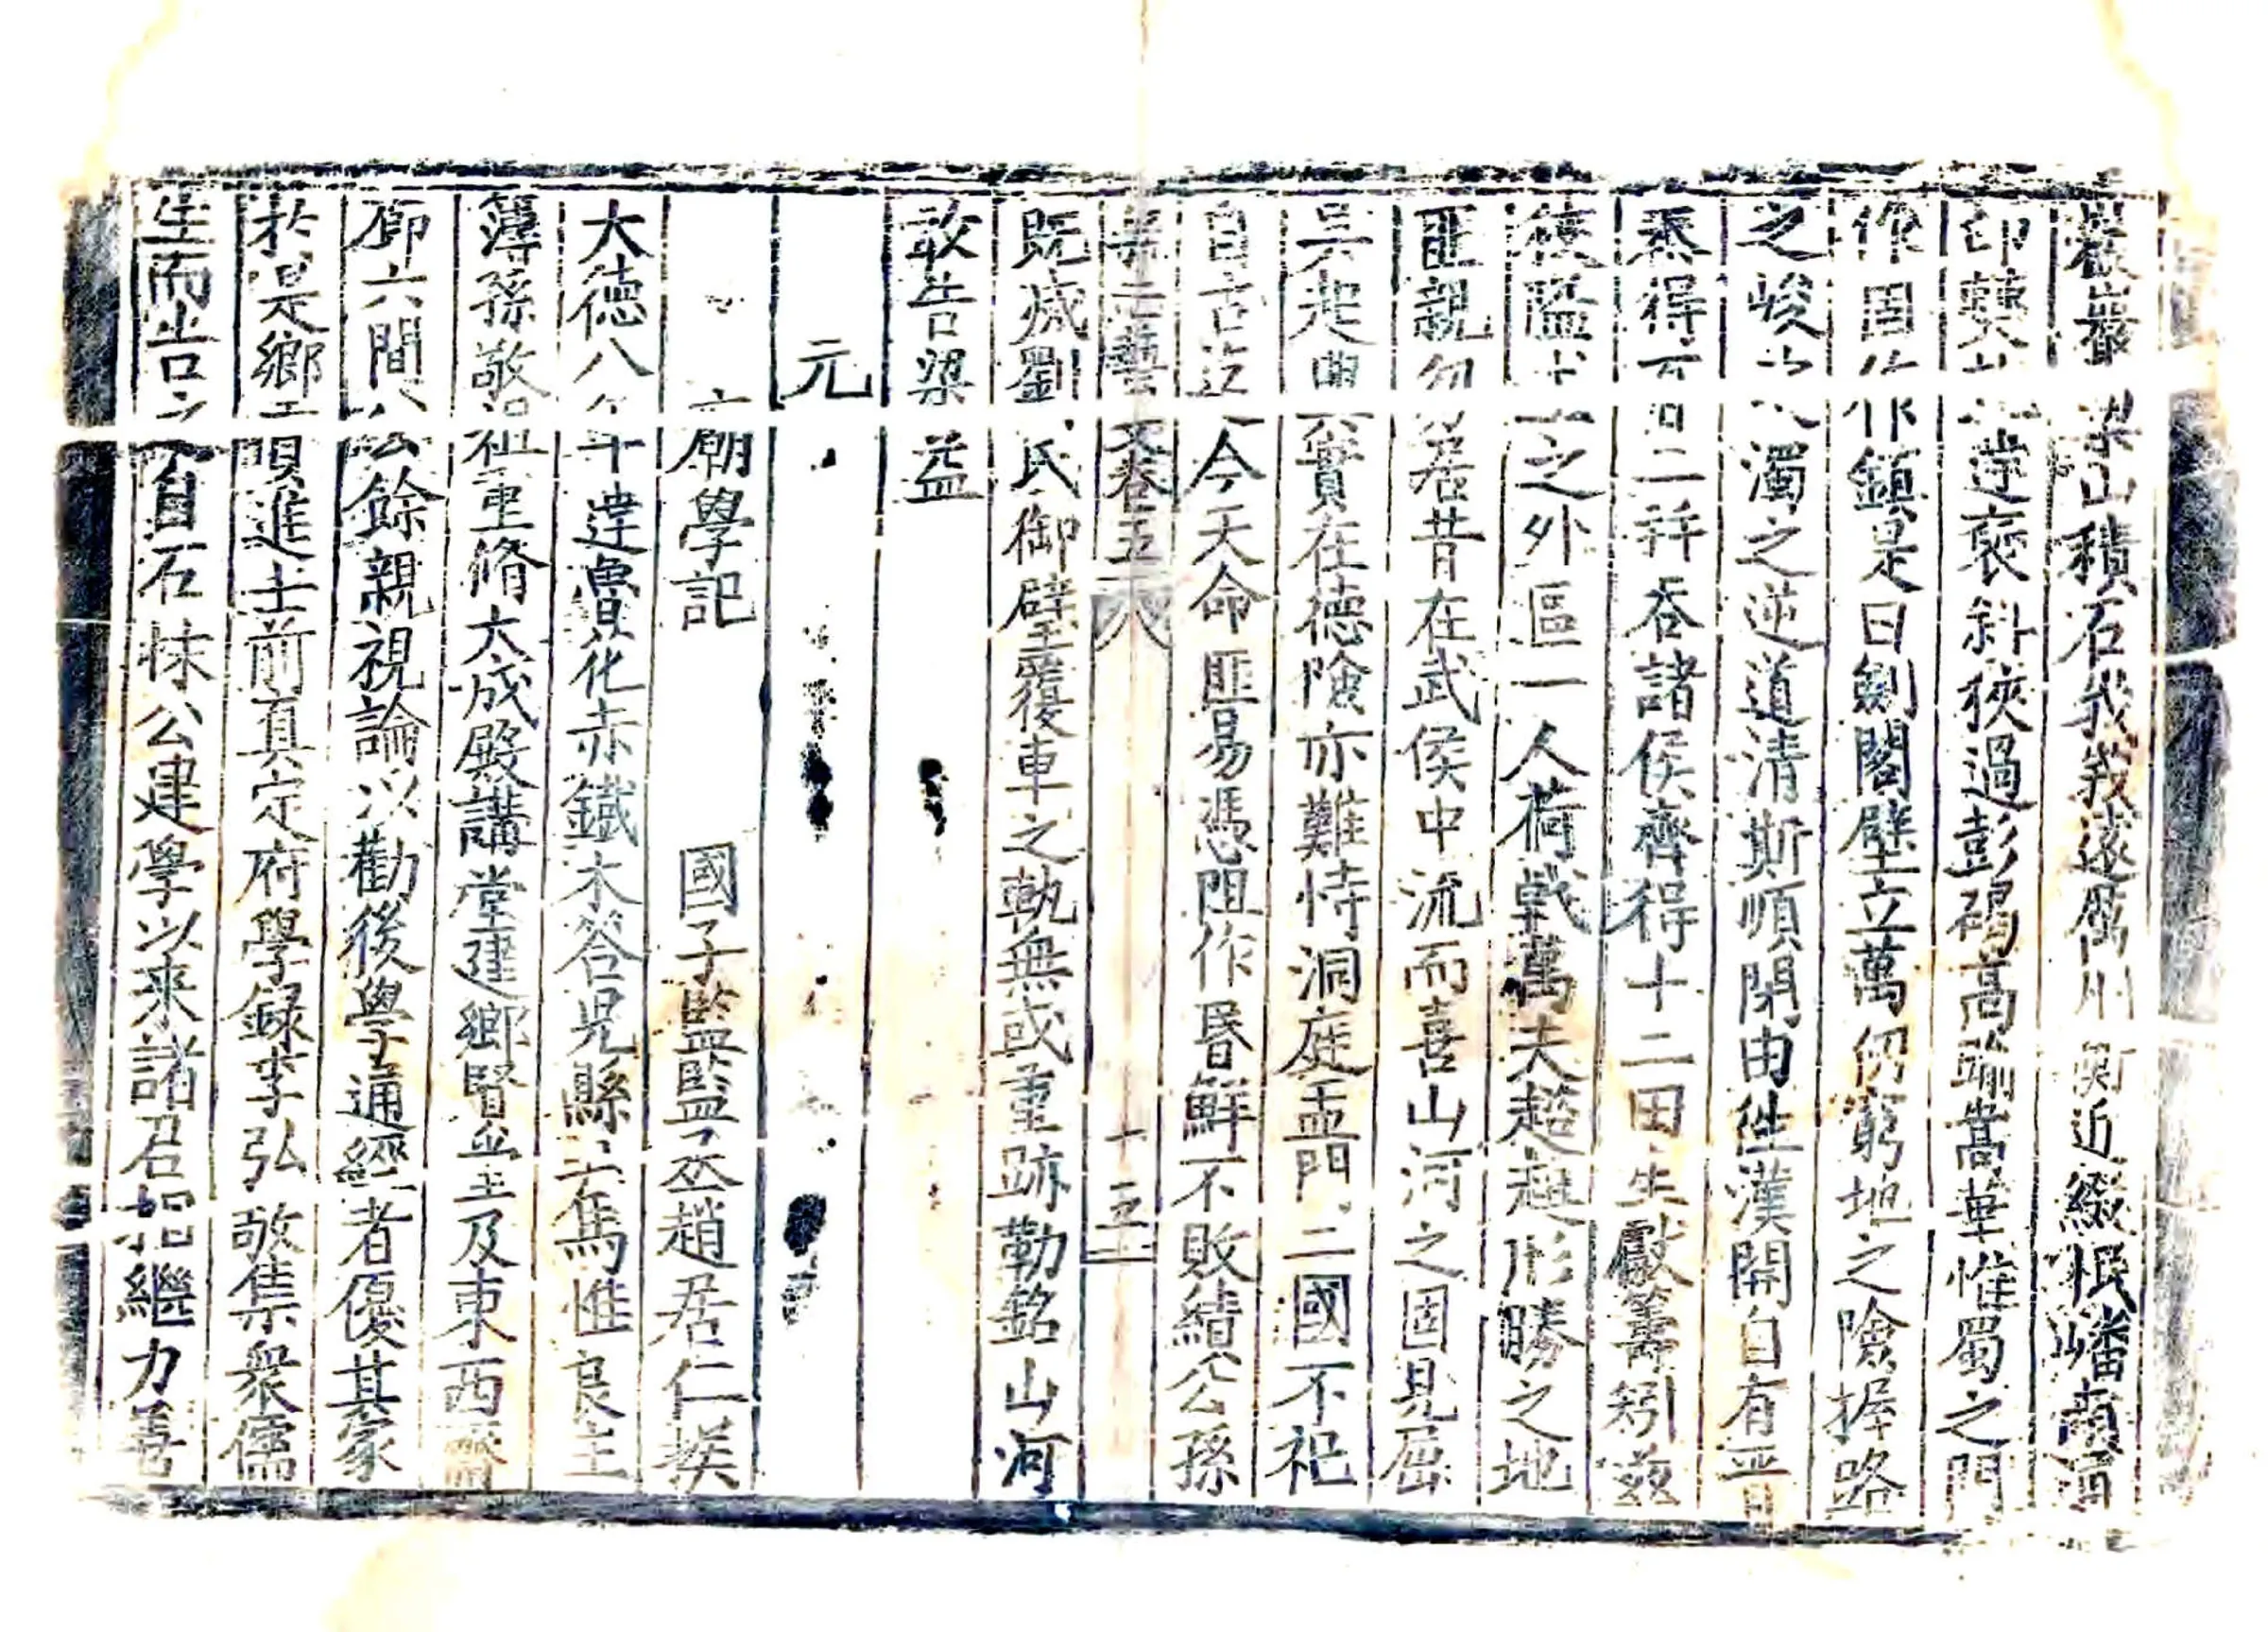 巖巖梁山積石峩峩遠屬荊衡近綴岷嶓南通
邛僰北達褒斜狹過彭碣高踰嵩華惟蜀之門
作固作鎮是曰劍閣壁立萬仞窮地之險極路
之峻濁之逆道清斯順閉由徃漢開自有晉
秦得百二并吞諸侯齊得十二田生獻籌矧兹
狹隘土之外區一人荷戟萬夫趑趄形勝之地
匪親勿居昔在武侯中流而喜山河之固見屈
吳起興實在德險亦難恃洞庭孟門二國不祀
自古迄今天命匪易憑阻作昏鮮不敗績公孫
藝文卷五 十五
既滅劉氏御璧覆車之軌無或重跡勒銘山河
敢告梁益
元
廟學記 國子監監丞趙居仁撰
大德八年達魯花赤鐵木荅兒縣主馬惟良主
簿孫敬祖重脩大成殿講堂建鄉賢并主及東西齋
廊六間公餘親視論以勸後學通經者優其家
於是鄉貢進士前真定府學錄李弘敬集衆儒
生而告之曰自石抹公建學以来諸君相繼力善